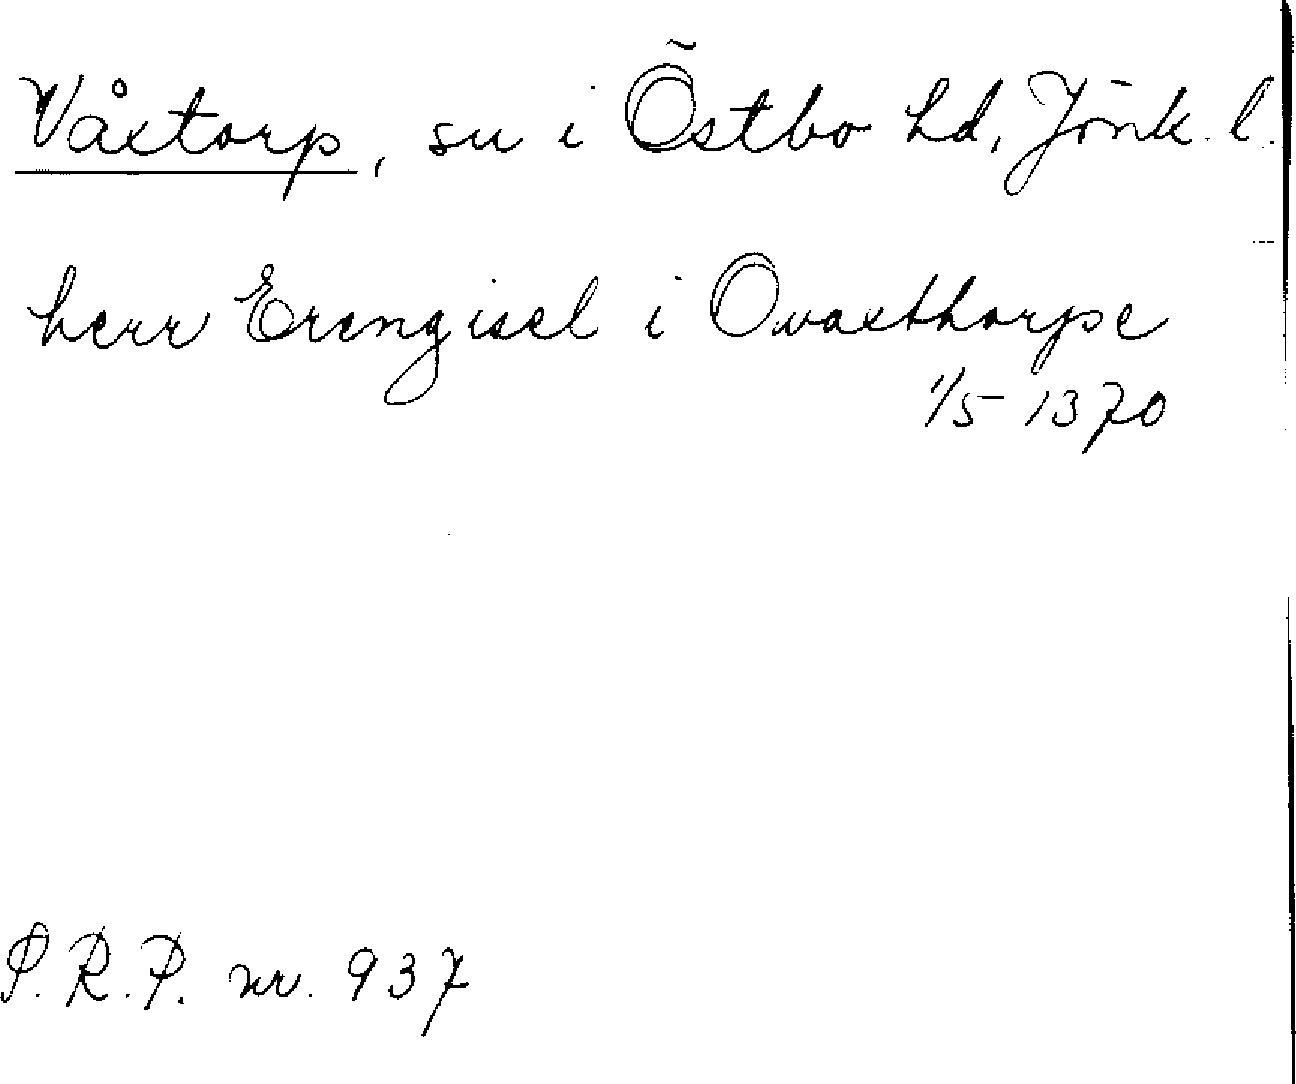 Våxtorp, sn i Östbo hd, Jönk. l.
herr Erengisel i Ovaxthorpe
1/5 1370
S.R.P. nr. 937